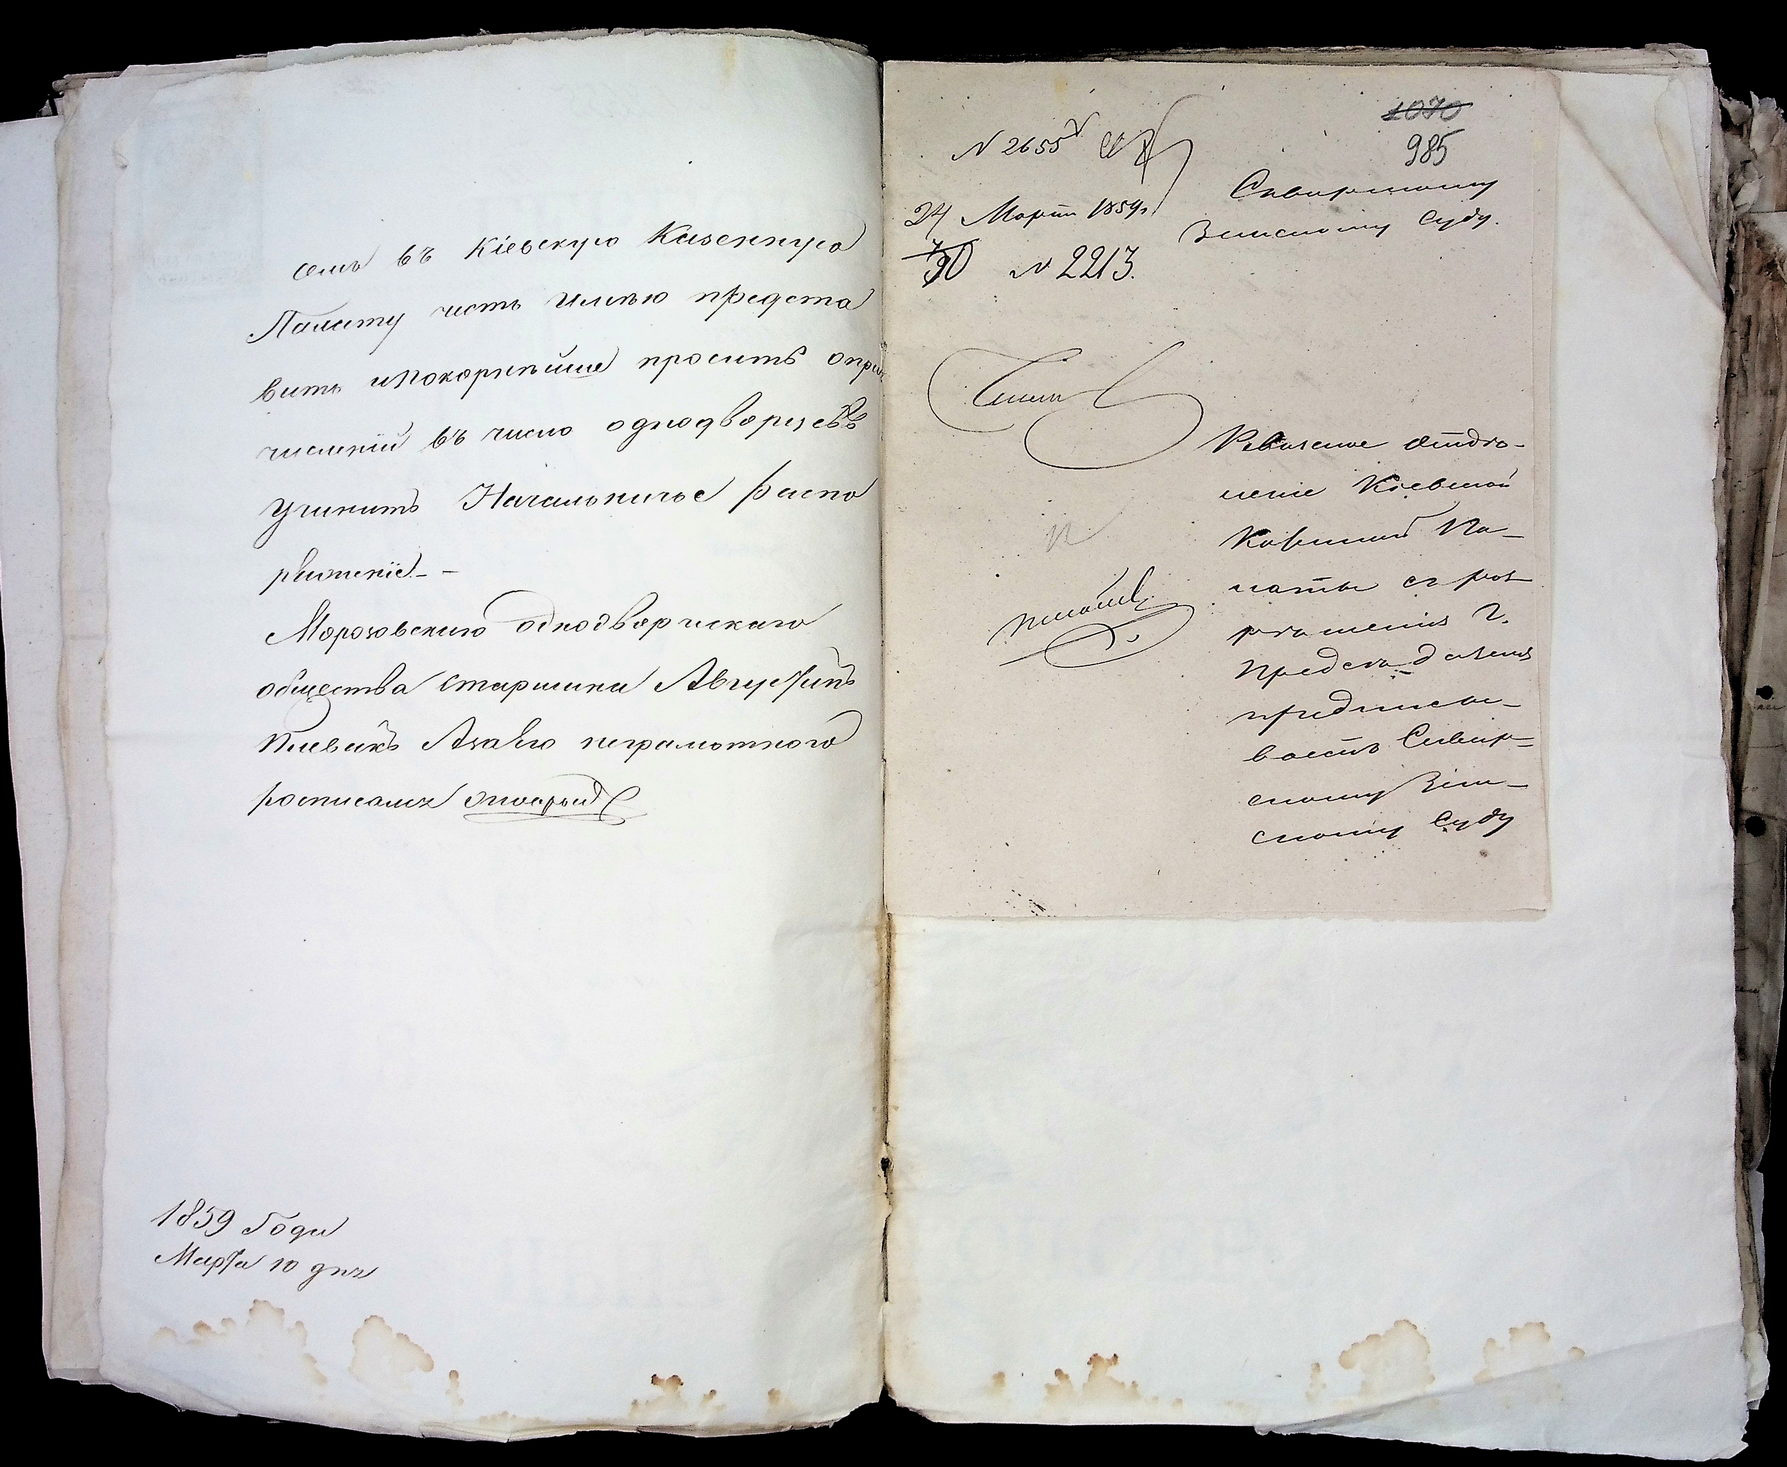 семъ въ Кіевскую Казенную
Палату честь имѣю предста
вить и покорнѣйше просить о при
численіи въ число однодворцевъ
учинить Начальничье распо
ряженіе.
Морозовскаго однодворческаго
общества старшина Августинъ
а за него неграмотного
росписался
1859 Года
Марта 10 дня
1070
985
N 2655
24 Марта 1859 г.
30 N 2213.
Сквирскому
Земскому Суду.
Ревизское отдѣ-
леніе Кіевской
Казенной Па-
латы съ раз-
рѣшенія Г.
Предсѣдателя
предписы-
ваетъ Сквир-
скому Зем-
скому Суду